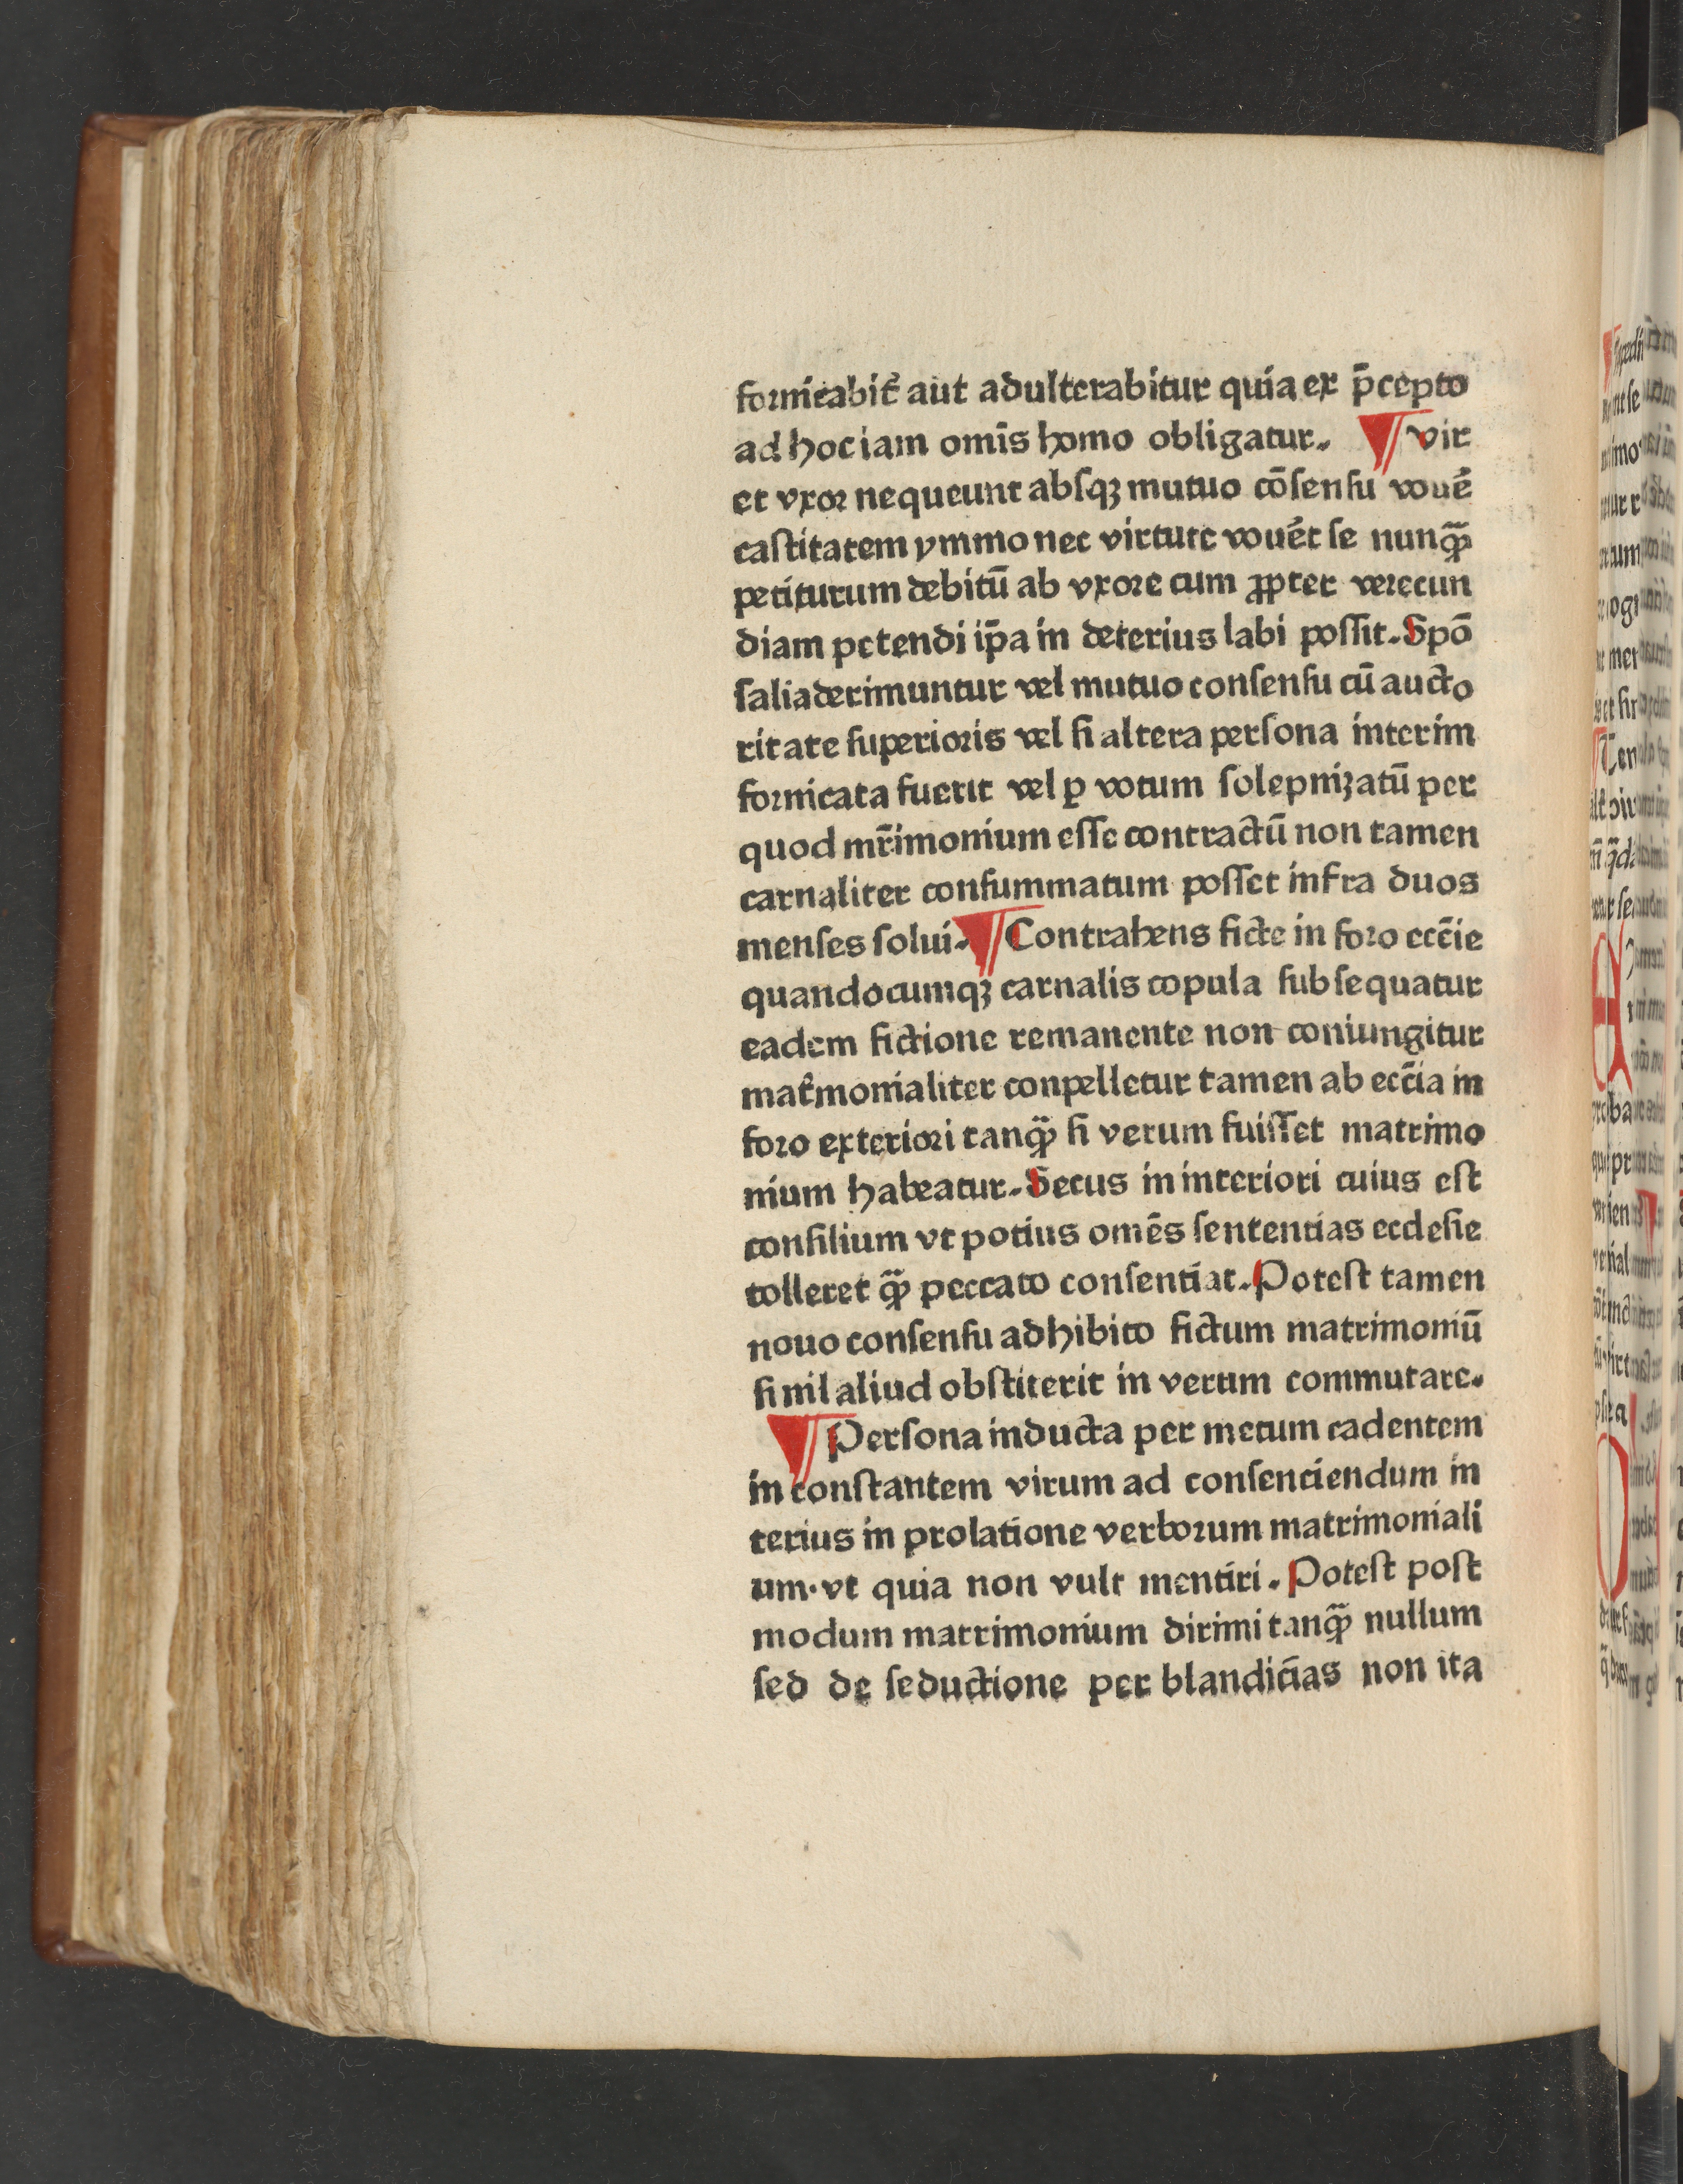 fornicabit᷑ aut adulterabitur quia ex p̄cepto
ad hoc iam omīs homo obligatur. ¶ vir
et vxor nequeunt abſqꝫ mutuo cōſenſu vouē
caſtitatem ymmo nec virtute vouēt ſe nunqᷓꝫ
petiturum debitū ab vxore cum ꝓpter verecun
diam petendi ip̄a in deterius labi poſſit. Spō
ſalia derimuntur vel mutuo conſenſu cū aucto
ritate ſuperioris vel ſi altera perſona interim
fornicata fuerit vel ꝑ votum ſolepnizatū per
quod mr̄imonium eſſe contractū non tamen
carnaliter conſummatum poſſet infra duos
menſes ſolui. ¶ Contrahens ficte in foro ecc̄ie
quandocumqꝫ carnalis copula ſubſequatur
eadem fictione remanente non coniungitur
mat᷑monialiter conpelletur tamen ab ecc̄ia in
foro exteriori tanqᷓꝫ ſi verum fuiſſet matrimo
nium habeatur. Secus in interiori cuius eſt
conſilium vt potius omēs ſententias eccleſie
tolleret qᷓꝫ peccato conſentiat. Poteſt tamen
nouo conſenſu adhibito fictum matrimoniū
ſi nil aliud obſtiterit in verum commutare.
¶ Perſona inducta per metum cadentem
in conſtantem virum ad conſenciendum in
terius in prolatione verborum matrimoniali
um· vt quia non vult mentiri. Poteſt poſt
modum matrimonium dirimi tanqᷓꝫ nullum
ſed de ſeductione per blandicias non ita